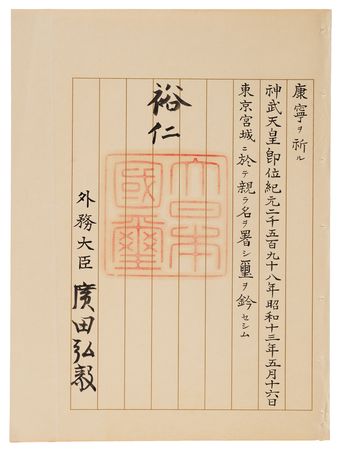 康寧ヲ祈ル
神武天皇卽位紀元二千五百九十八年昭和十三年五月十六日
東京宮城ニ於テ親ラ名ヲ署シ璽ヲ鈐セシム
裕仁
大日本國璽
外務大臣 廣田弘毅